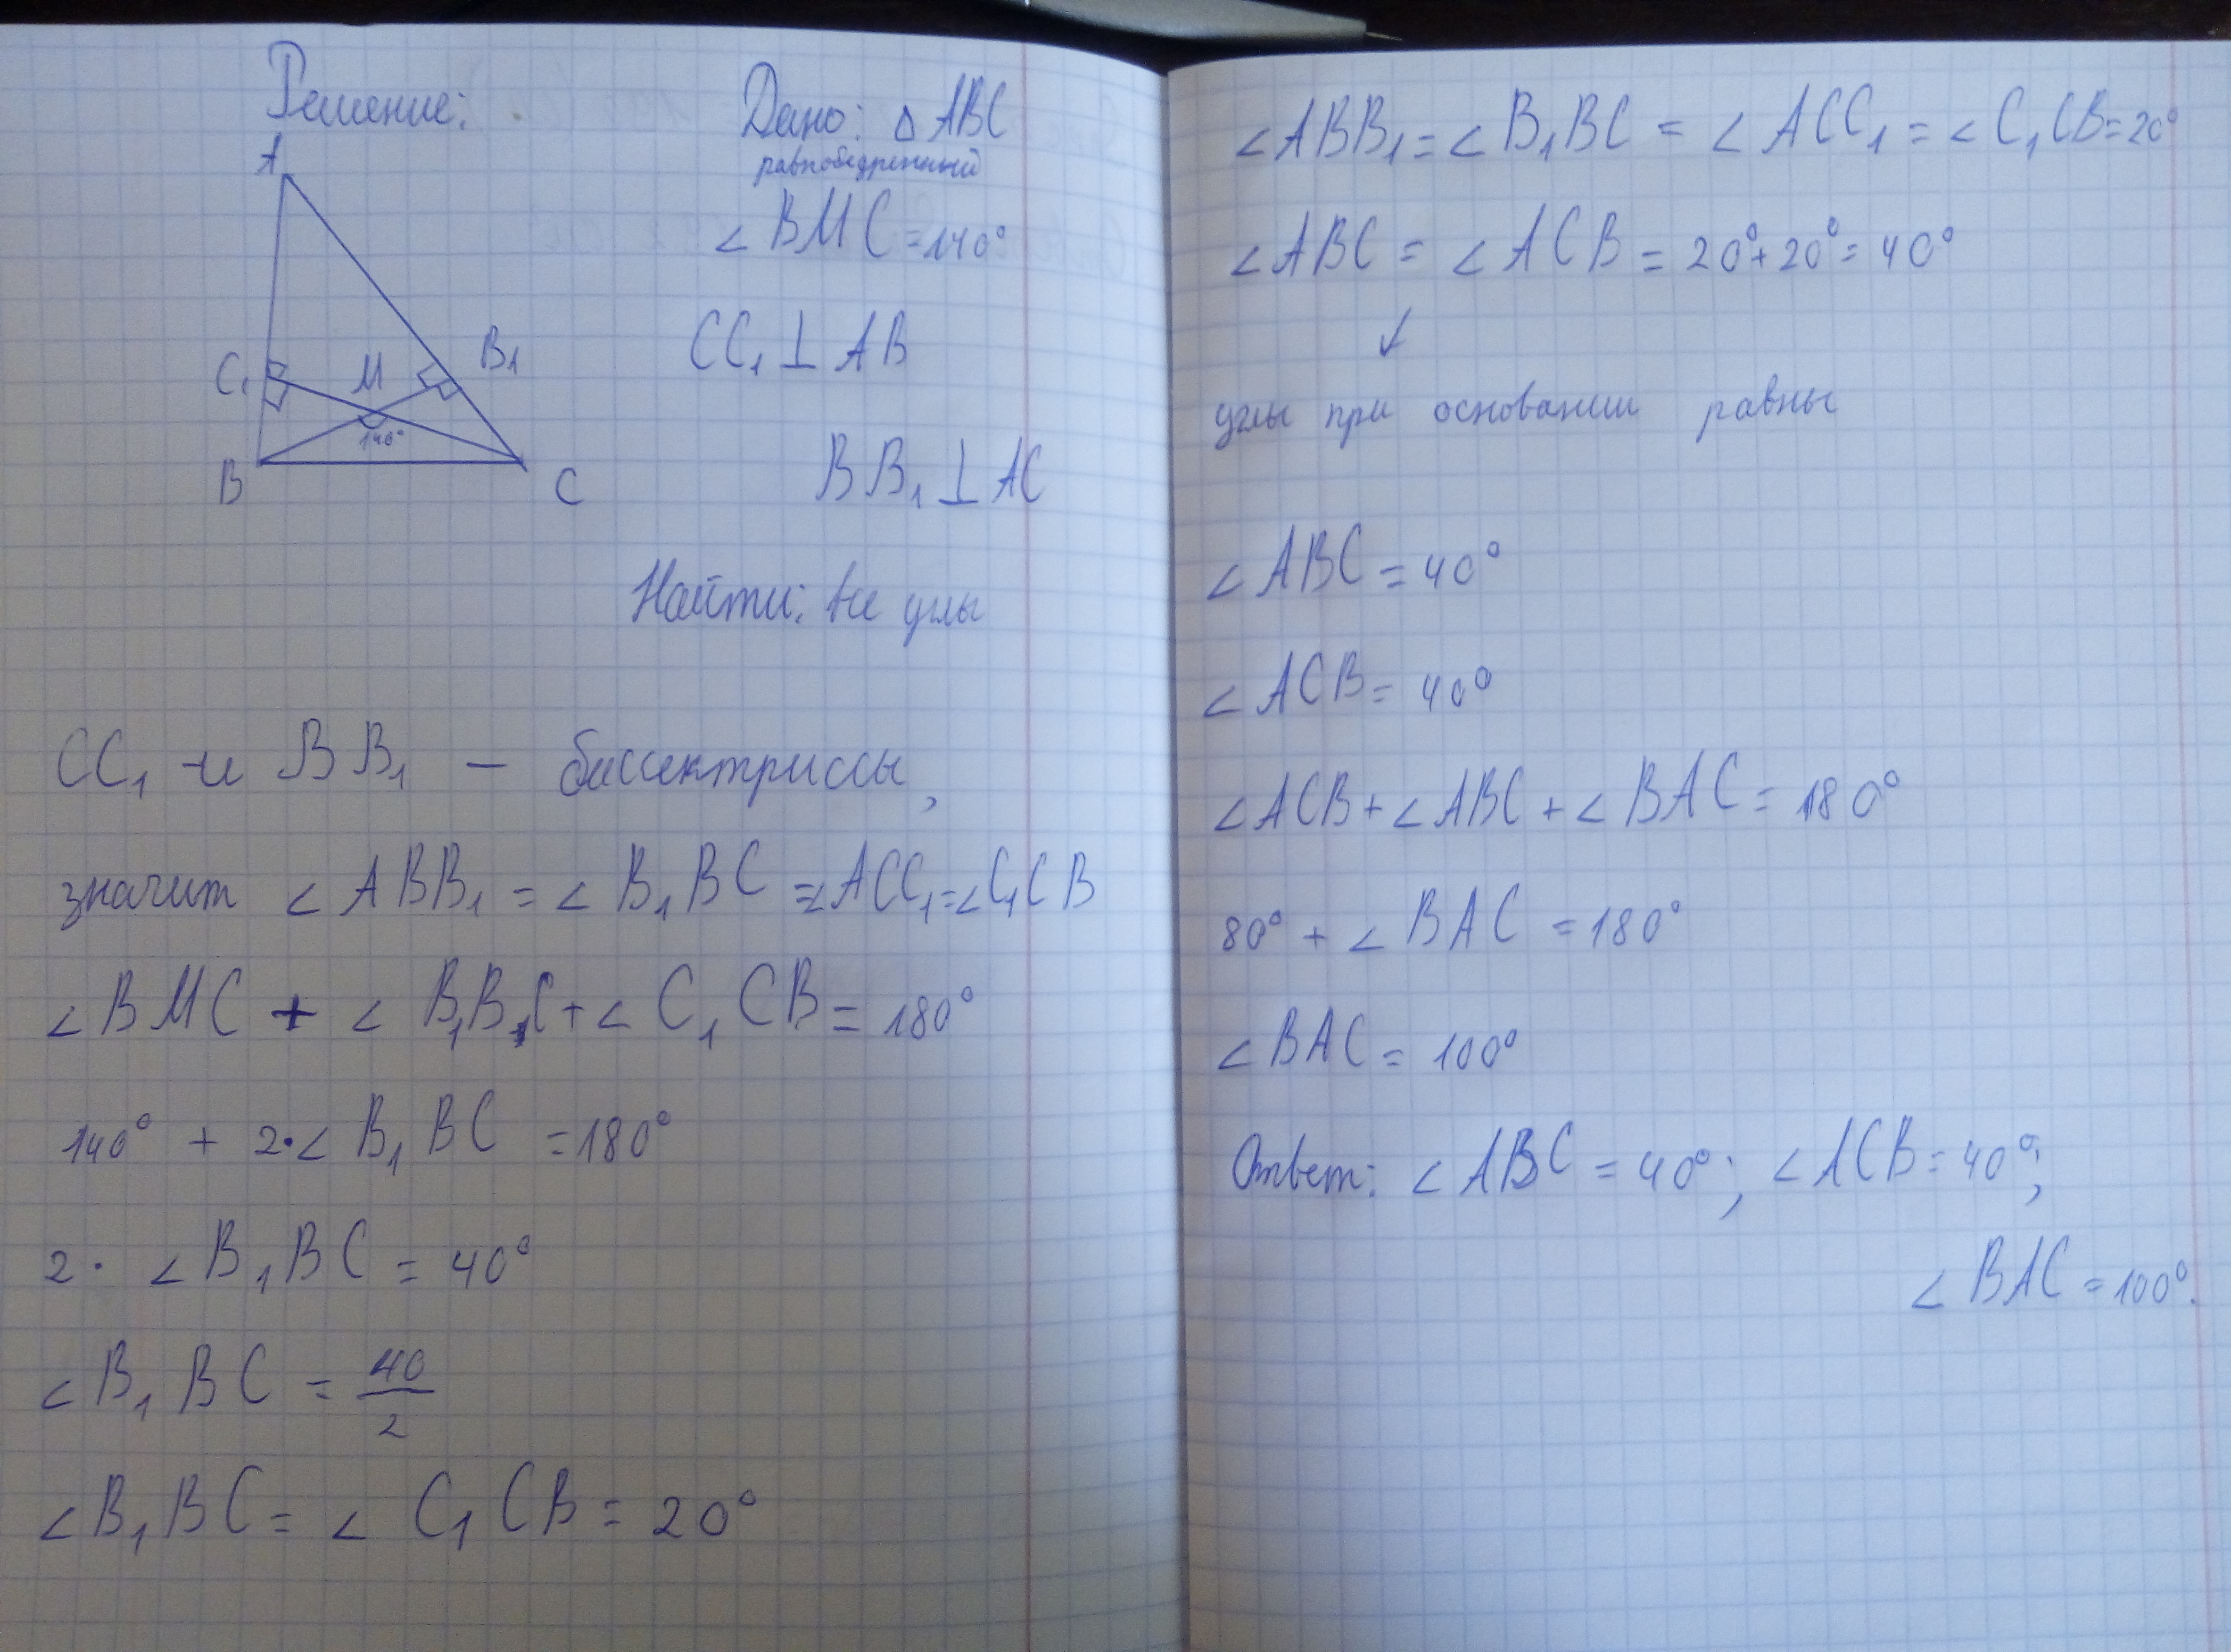 Решение:
A
C₁
M
B₁
140°
B
C
Дано: △ ABC
равнобедренный
∠ BMC = 140°
CC₁ ⊥ AB
BB₁ ⊥ AC
Найти: все углы
CC₁ и BB₁ – биссектриссы,
значит ∠ ABB₁ = ∠ B₁BC = ∠ACC₁ = ∠C₁CB
∠ BMC + ∠ B₁B₁C + ∠ C₁CB = 180°
140° + 2·∠ B₁BC = 180°
2· ∠ B₁BC = 40°
∠ B₁BC = 40/2
∠ B₁BC = ∠ C₁CB = 20°
∠ABB₁ = ∠ B₁BC = ∠ ACC₁ = ∠ C₁CB = 20°
∠ABC = ∠ ACB = 20° + 20° = 40°
↙
углы при основании равны
∠ ABC = 40°
∠ ACB = 40°
∠ACB + ∠ABC + ∠ BAC = 180°
80° + ∠ BAC = 180°
∠ BAC = 100°
Ответ: ∠ ABC = 40°; ∠ACB = 40°;
∠ BAC = 100°.